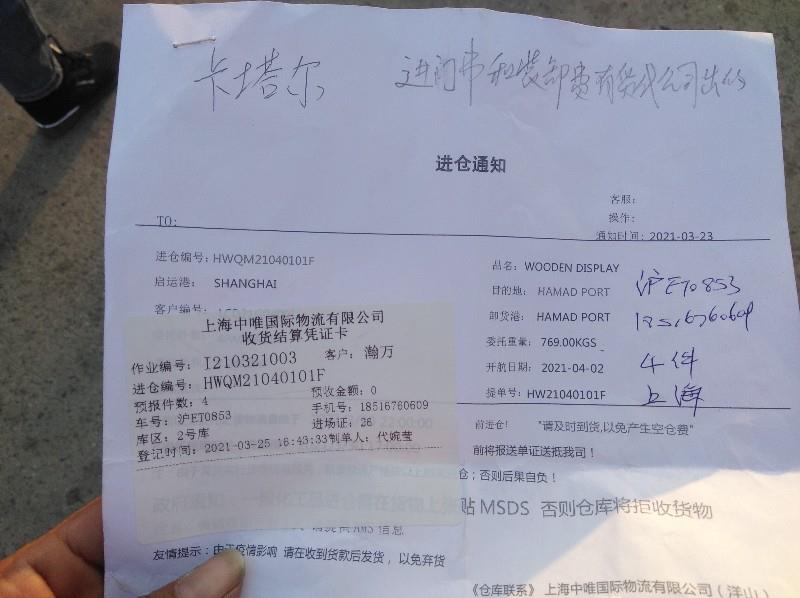 卡塔尔 进门费和装卸费有货代公司出的
进仓通知
客服:
操作:
TO:
通知时间: 2021-03-23
进仓编号: HWQM21040101F
启运港: SHANGHAI
客户编号:
品名: WOODEN DISPLAY
目的地: HAMAD PORT 沪ET0853
卸货港: HAMAD PORT 18516760609
委托重量: 769.00KGS 4件
开航日期: 2021-04-02
提单号: HW21040101F 上海
上海中唯国际物流有限公司
收货结算凭证卡
作业编号: I210321003 客户: 瀚万
进仓编号: HWQM21040101F
预报件数: 4 预收金额: 0
车号: 沪ET0853 手机号: 18516760609
库区: 2号库 进场证: 26
登记时间: 2021-03-25 16:43:33 制单人: 代婉莹
前进仓! "请及时到货,以免产生空仓费"
前将报送单证送抵我司!
仓;否则后果自负!
贴 MSDS 否则仓库将拒收货物
友情提示: 由于疫情影响 请在收到货款后发货,以免弃货
《仓库联系》上海中唯国际物流有限公司(洋山)